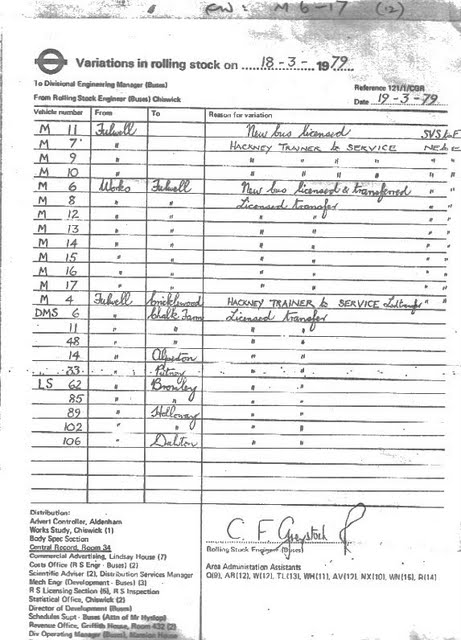 CW: M 6-17 (12)
Variations in rolling stock on 18-3-1979
To Divisional Engineering Manager (Buses)
From Rolling Stock Engineer (Buses) Chiswick
Reference 121/1/CGR
Date 19-3-79
Vehicle number From To Reason for variation
M 11 Fulwell New bus licensed
M 7 " HACKNEY TRAINER to SERVICE
M 9 " " " " "
M 10 " " " " "
M 6 Works Fulwell New bus licensed & transferred
M 8 " " Licensed transfer
M 12 " " " "
M 13 " " " "
M 14 " " " "
M 15 " " " "
M 16 " " " "
M 17 " " " "
M 4 Fulwell Cricklewood HACKNEY TRAINER to SERVICE
DMS 6 " Chalk Farm Licensed transfer
11 " " " "
48 " " " "
14 " " "
33 " Putney " "
LS 62 " Bromley " "
85 " " " "
89 " Holloway " "
102 " " " "
106 " Dalston " "
Distribution:
Advert Controller, Aldenham
Works Study, Chiswick (1)
Body Spec Section
Central Record, Room 34
Commercial Advertising, Lindsay House (7)
Costs Office (R S Engr - Buses) (2)
Scientific Adviser (2), Distribution Services Manager
Mech Engr (Development - Buses) (3)
R S Licensing Section (6), R S Inspection
Statistical Office, Chiswick (2)
Director of Development (Buses)
Schedules Supt - Buses (Attn of Mr Hyslop)
Revenue Office, Griffith House, Room 432 (2)
Div Operating Manager (Buses)
C F Greystock
Rolling Stock Engineer (Buses)
Area Administation Assistants
Q(9), AR(12), W(12), TL(13), WH(11), AV(12), NX(10), WN(16), R(14)